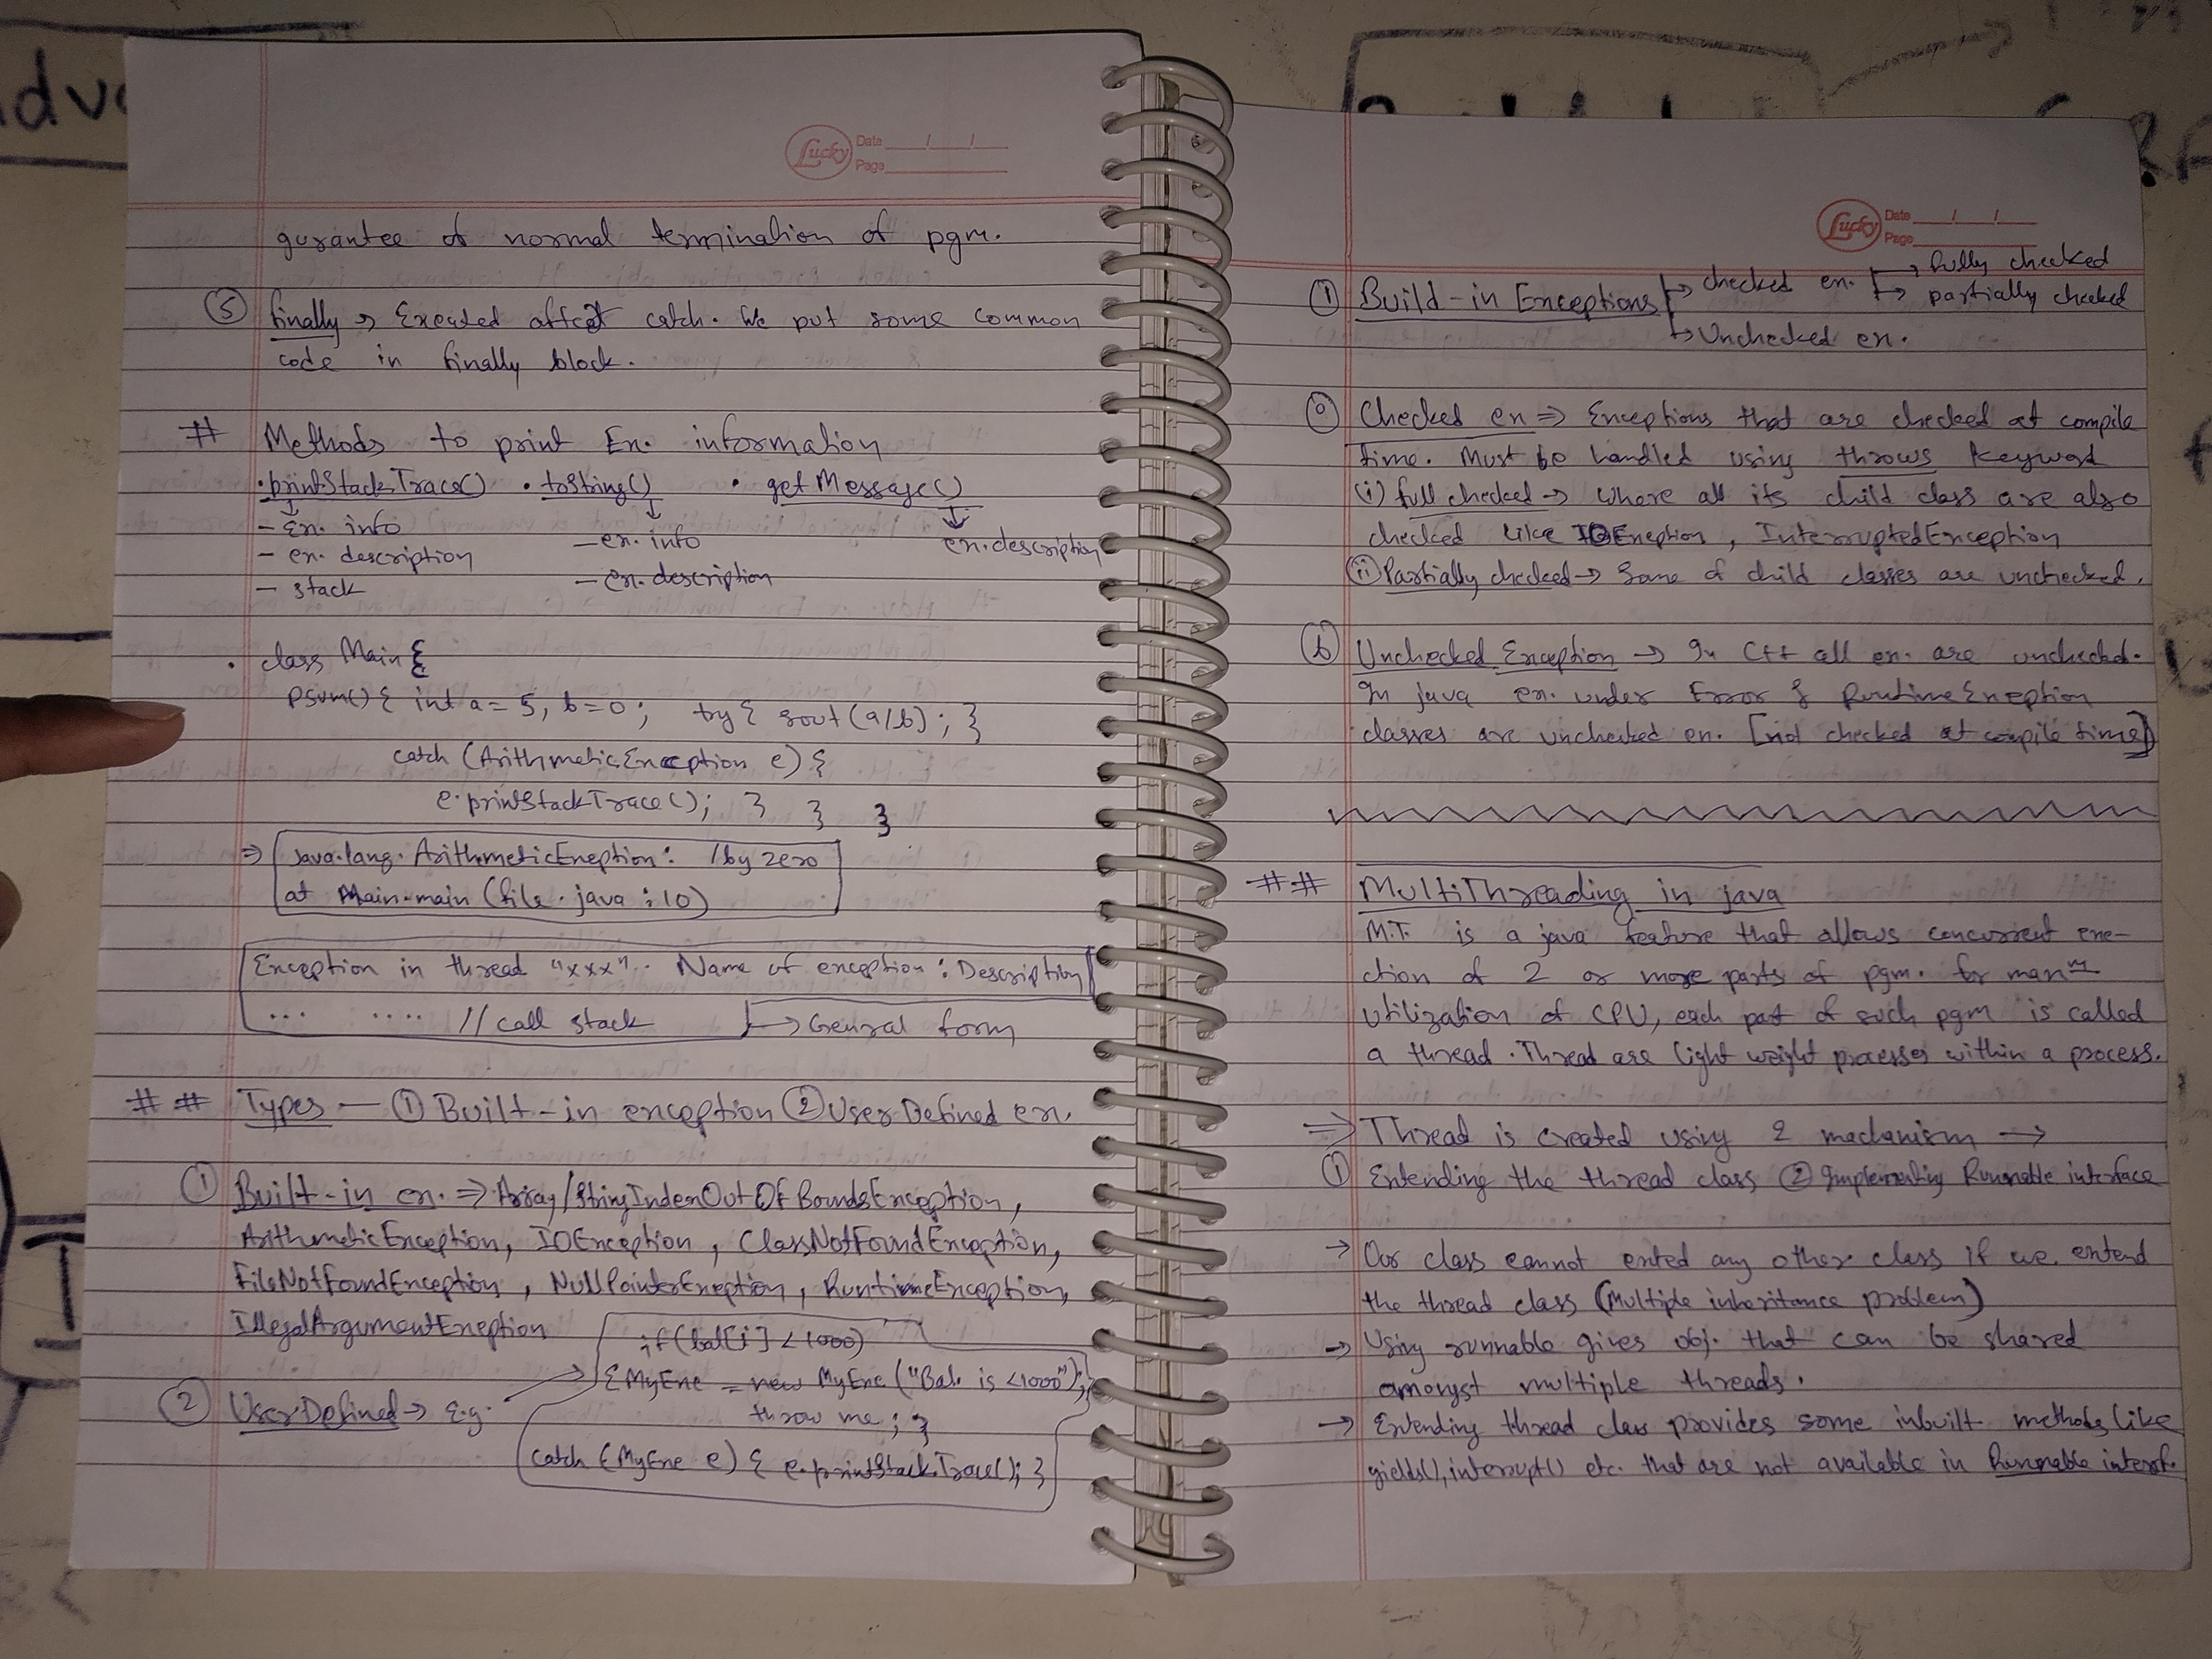 Lucky Date / /
Page
gurantee of normal termination of pgm.
⑤ finally → Executed affect catch. We put some common
code in finally block.
# Methods to print Ex. information
• printStackTrace() • toString() • getMessage()
- Ex. info
- ex. description
- stack
- ex. info
- ex. description
ex. description
• class Main {
psvm() { int a = 5, b = 0; try { sout (a/b); }
catch (ArithmeticException e) {
e.printStackTrace(); } } }
⇒ java.lang.ArithmeticExeption: / by zero
at Main.main (file.java : 10)
Exception in thread "xxx".. Name of exception : Description
... .... // call stack → General form
## Types — ① Built-in exception ② UserDefined ex.
① Built-in ex. ⇒ Array/StringIndexOutOfBoundsException,
ArithmeticException, IOException, ClassNotFoundException,
FileNotFoundException, NullPointerExeption, RuntimeException,
IllegalArgumentExeption
② UserDefined → e.g.
if (bal[i] < 1000)
{ MyExe = new MyExe ("Bal. is <1000");
throw me; }
catch (MyExe e) { e.printStackTrace(); }
Lucky Date / /
Page
① Build-in Exceptions → checked ex. → fully checked
→ partially checked
→ Unchecked ex.
Checked ex ⇒ Exceptions that are checked at compile
time. Must be handled using throws keyword
(i) full checked → where all its child class are also
checked like IOExeption, InterruptedException
(ii) Partially checked → Some of child classes are unchecked.
ⓑ Unchecked Exception → In C++ all ex. are unchecked.
In java ex. under Error & RuntimeExeption
classes are unchecked ex. [not checked at compile time]
## MultiThreading in java
M.T. is a java feature that allows concurrent exe-
ction of 2 or more parts of pgm. for maxm
utilization of CPU, each part of such pgm is called
a thread. Thread are light weight processes within a process.
⇒ Thread is created using 2 mechanism →
① Extending the thread class ② Implementing Runnable interface
→ Our class cannot exted any other class if we extend
the thread class (Multiple inheritance problem)
→ Using runnable gives obj. that can be shared
amongst multiple threads.
→ Extending thread class provides some inbuilt methods like
yields(), interrupt() etc. that are not available in Runnable interf.